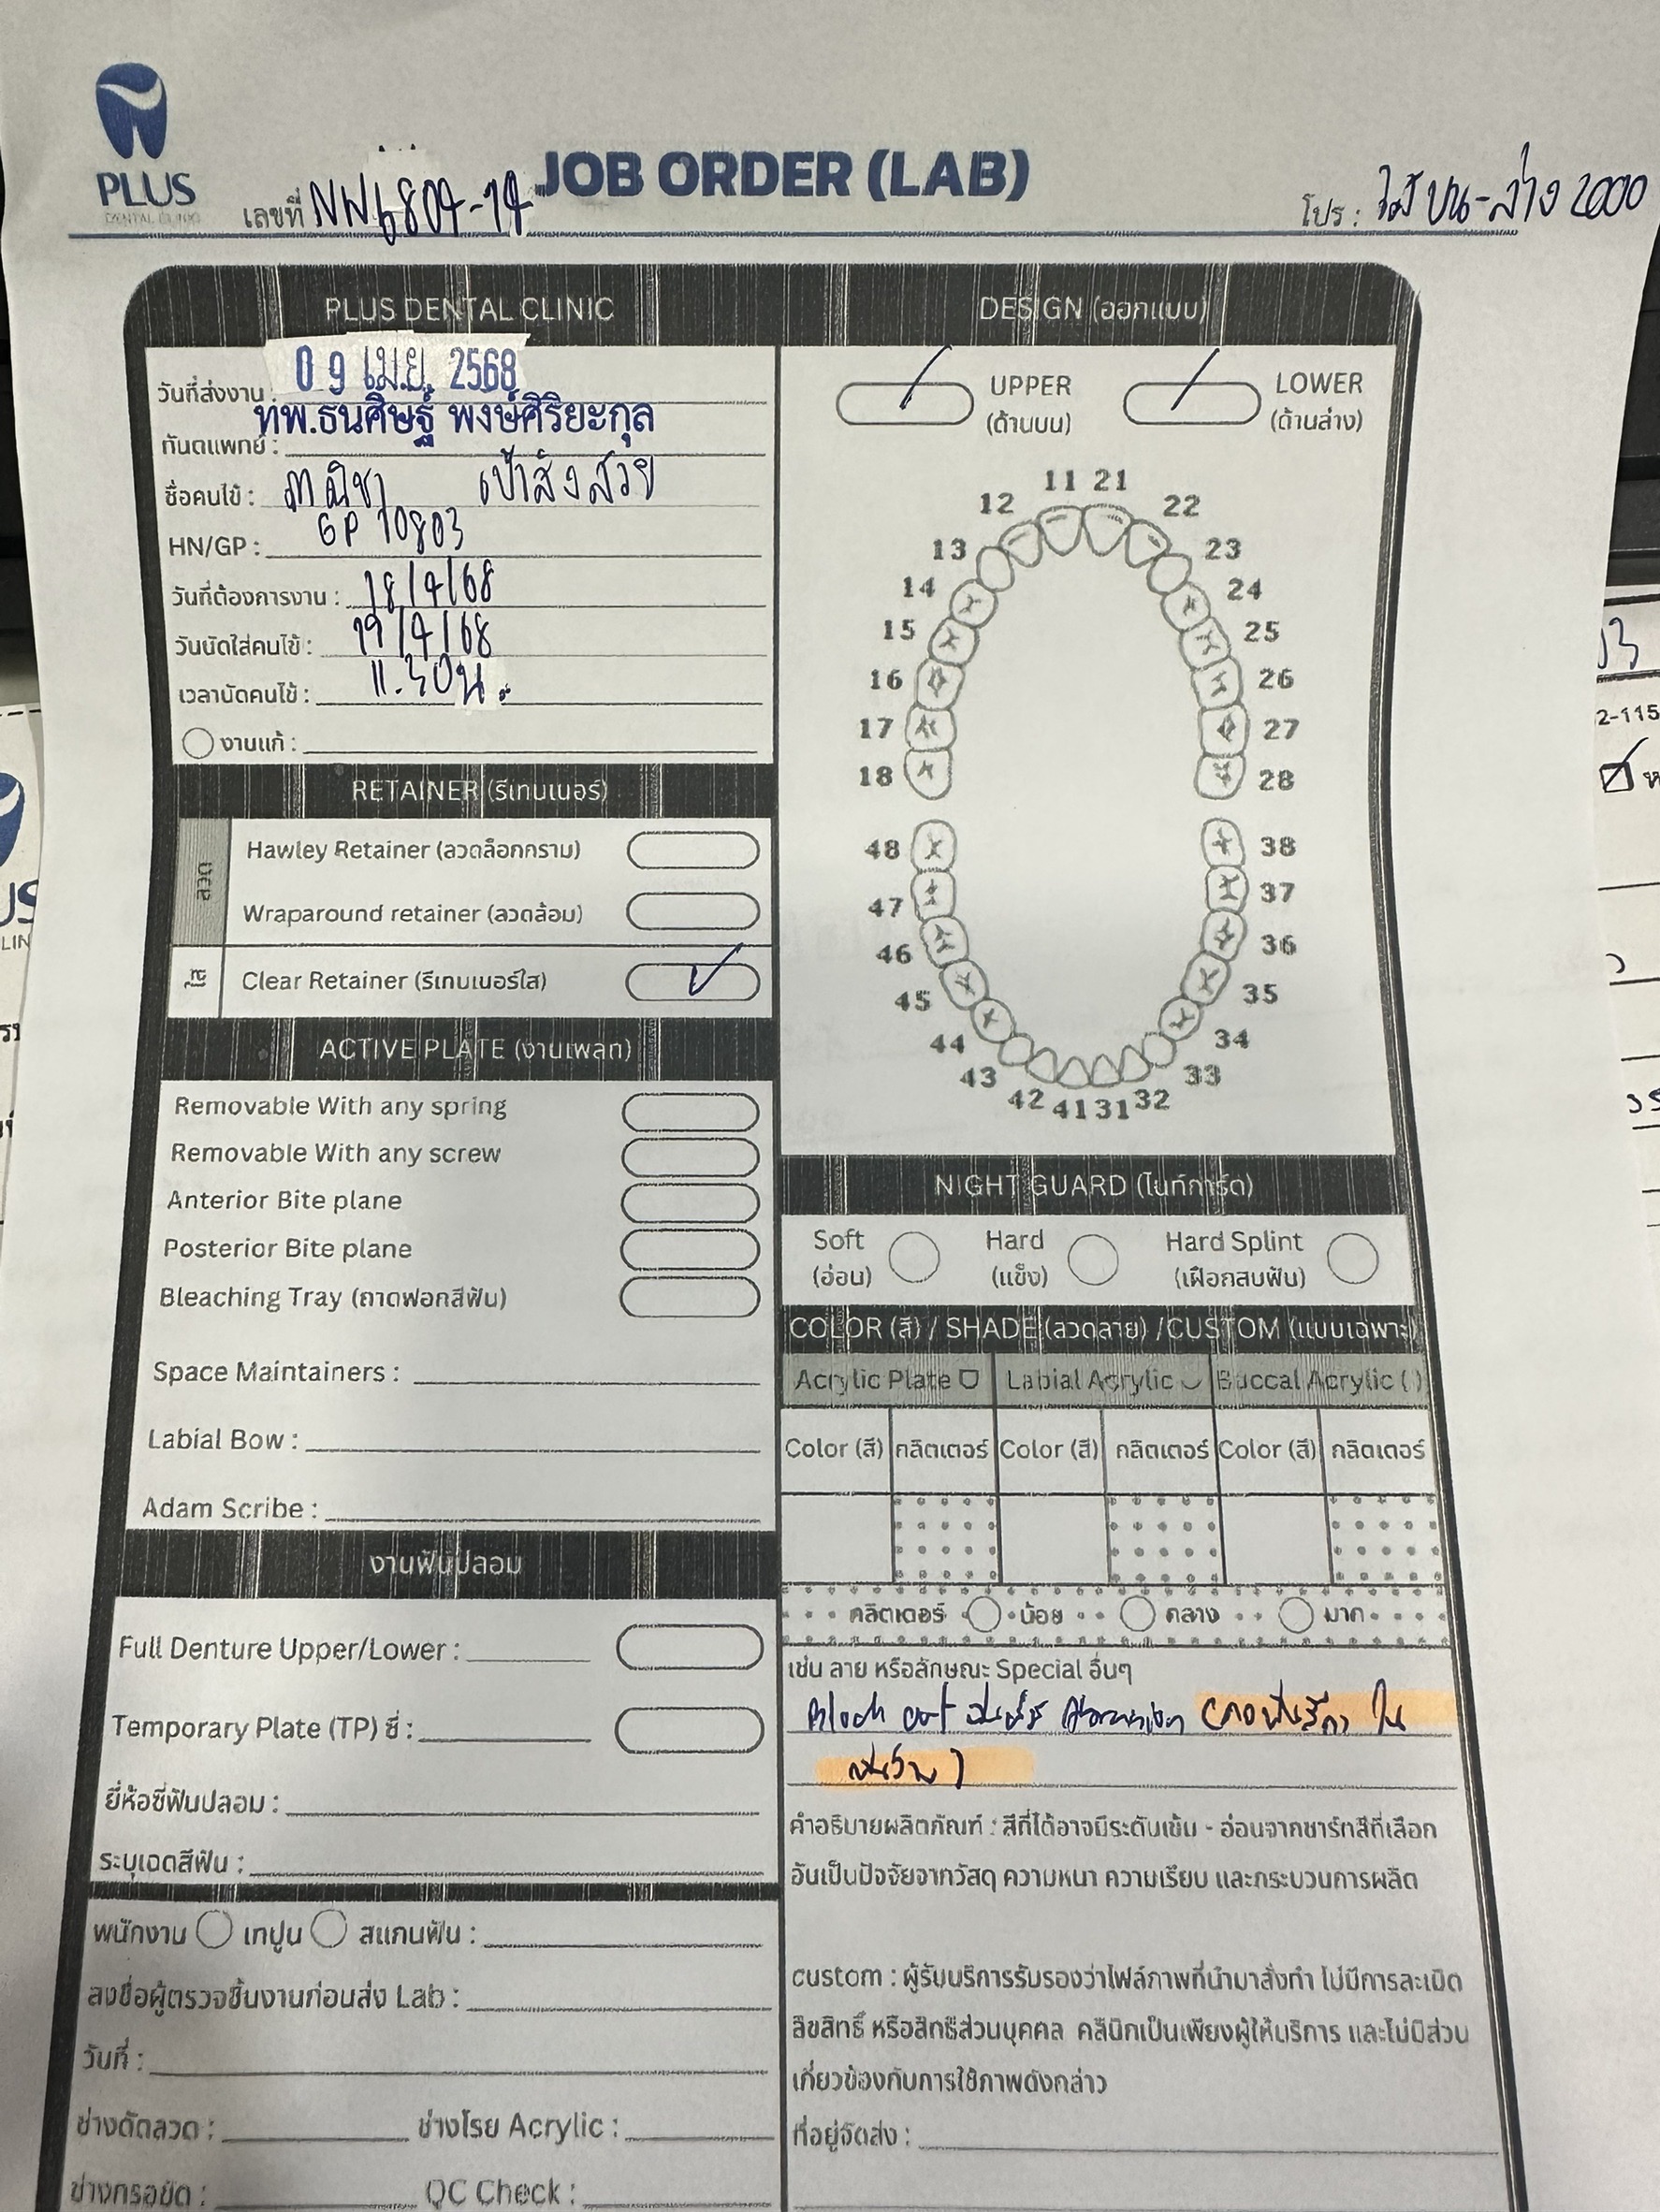 PLUS
DENTAL CLINIC
เลขที่ NW6804-74
JOB ORDER (LAB)
โปร : ใสบน-ล่าง 2000
PLUS DENTAL CLINIC
วันที่ส่งงาน : 09 เม.ย. 2568
ทันตแพทย์ : ทพ.ธนศิษฐ์ พงษ์ศิริยะกุล
ชื่อคนไข้ : ภาณิชา เป้าสังสวย
HN/GP : GP 10803
วันที่ต้องการงาน : 18/4/68
วันนัดใส่คนไข้ : 19/4/68
เวลานัดคนไข้ : 11.30น.
งานแก้ :
RETAINER (รีเทนเนอร์)
ลวด
Hawley Retainer (ลวดล็อกกราม)
Wraparound retainer (ลวดล้อม)
ใส
Clear Retainer (รีเทนเนอร์ใส)
ACTIVE PLATE (งานเพลท)
Removable With any spring
Removable With any screw
Anterior Bite plane
Posterior Bite plane
Bleaching Tray (ถาดฟอกสีฟัน)
Space Maintainers :
Labial Bow :
Adam Scribe :
งานฟันปลอม
Full Denture Upper/Lower :
Temporary Plate (TP) ซี่ :
ยี่ห้อซี่ฟันปลอม :
ระบุเฉดสีฟัน :
พนักงาน เทปูน สแกนฟัน :
ลงชื่อผู้ตรวจชิ้นงานก่อนส่ง Lab :
วันที่ :
ช่างดัดลวด : ช่างโรย Acrylic :
ช่างกรอขัด : QC Check :
DESIGN (ออกแบบ)
UPPER
(ด้านบน)
LOWER
(ด้านล่าง)
11 21
12 22
13 23
14 24
15 25
16 26
17 27
18 28
48 38
47 37
46 36
45 35
44 34
43 33
42 41 31 32
NIGHT GUARD (ไนท์การ์ด)
Soft Hard Hard Splint
(อ่อน) (แข็ง) (เฝือกสบฟัน)
COLOR (สี) / SHADE (ลวดลาย) /CUSTOM (แบบเฉพาะ)
Acrylic Plate Labial Acrylic Buccal Acrylic ( )
Color (สี) กลิตเตอร์ Color (สี) กลิตเตอร์ Color (สี) กลิตเตอร์
กลิตเตอร์ น้อย กลาง มาก
เช่น ลาย หรือลักษณะ Special อื่นๆ
Block out
คำอธิบายผลิตภัณฑ์ : สีที่ได้อาจมีระดับเข้ม - อ่อนจากชาร์ทสีที่เลือก
อันเป็นปัจจัยจากวัสดุ ความหนา ความเรียบ และกระบวนการผลิต
custom : ผู้รับบริการรับรองว่าไฟล์ภาพที่นำมาสั่งทำ ไม่มีการละเมิด
ลิขสิทธิ์ หรือสิทธิส่วนบุคคล คลินิกเป็นเพียงผู้ให้บริการ และไม่มีส่วน
เกี่ยวข้องกับการใช้ภาพดังกล่าว
ที่อยู่จัดส่ง :